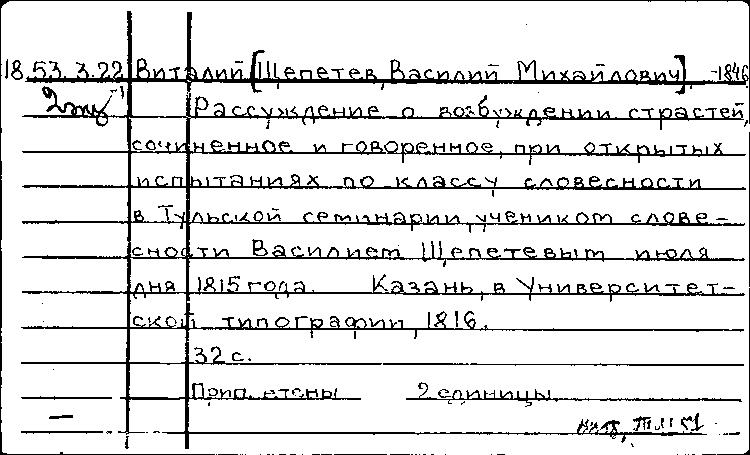 18.53.3.22 Виталий [Щепетев, Василий Михайлович], -1846
2 экз -1 Рассуждение о возбуждении страстей,
сочиненное и говоренное, при открытых
испытаниях по классу словесности
в Тульской семинарии, учеником слове-
сности Василием Щепетевым июля
дня 1815 года. Казань, в Университет-
ской типографии, 1816.
32 с.
2 единицы